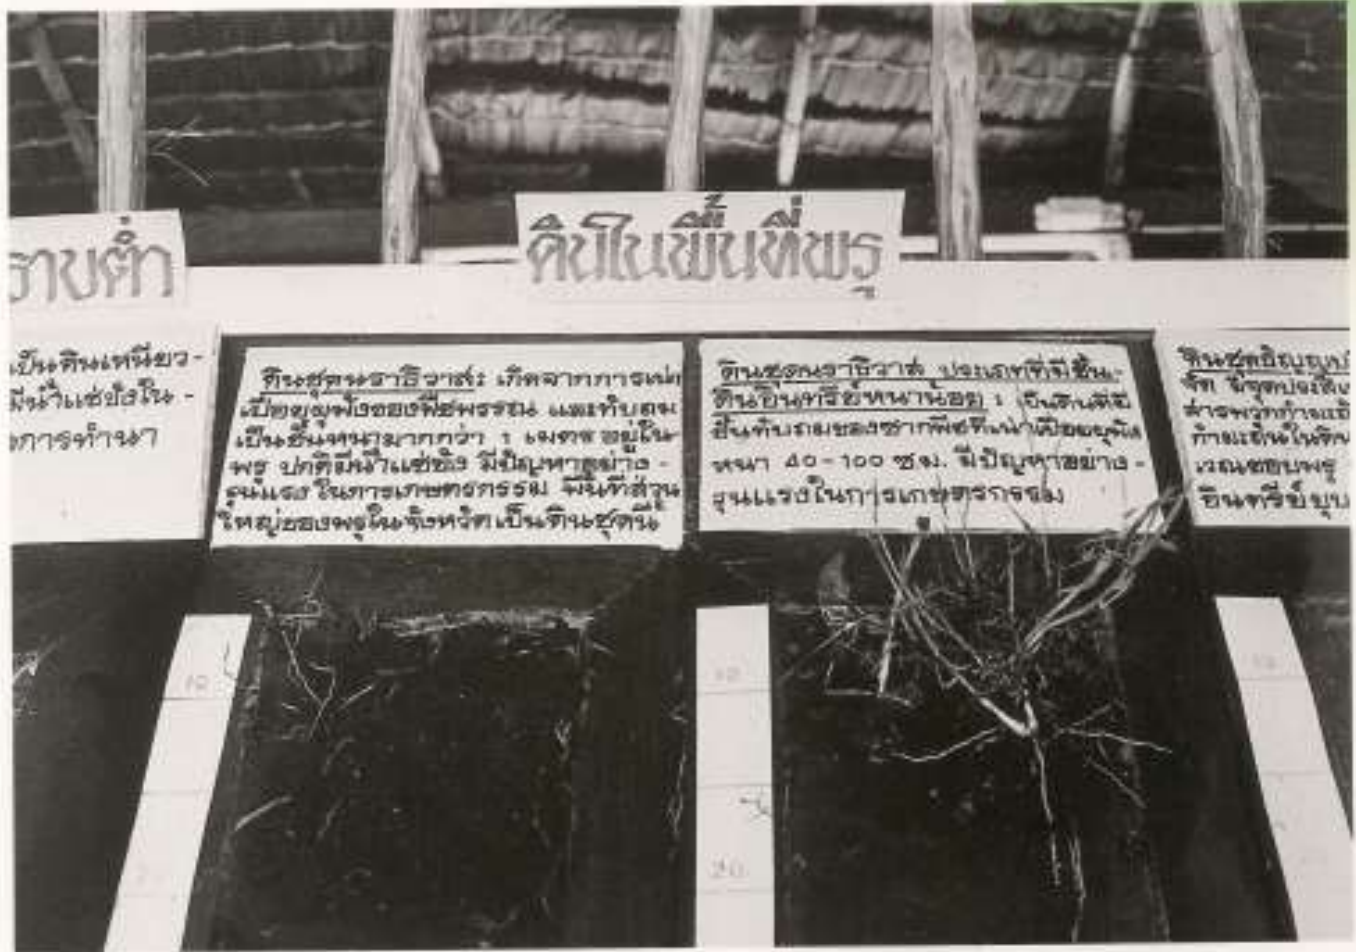 ราบต่ำ
ดินในพื้นที่พรุ
เป็นดินเหนียว-
มีน้ำแช่ขังใน-
การทำนา
ดินชุดนราธิวาส: เกิดจากการเน่า
เปื่อยผุพังของพืชพรรณ และทับถม
เป็นชั้นหนามากกว่า 1 เมตร อยู่ใน
พรุ ปกติมีน้ำแช่ขัง มีปัญหาอย่าง-
รุนแรงในการเกษตรกรรม พื้นที่ส่วน
ใหญ่ของพรุในจังหวัดเป็นดินชุดนี้
ดินชุดนราธิวาส ประเภทที่มีชั้น-
ดินอินทรีย์หนาน้อย : เป็นดินที่มี
ชั้นทับถมของซากพืชที่เน่าเปื่อยผุพัง
หนา 40-100 ซม. มีปัญหาอย่าง-
รุนแรงในการเกษตรกรรม
ดินชุด
จัด มีจุดประสี
สารพวกกำมะถั
กำมะถันในดิน
เวณขอบพรุ
อินทรีย์
10
10
10
20
20